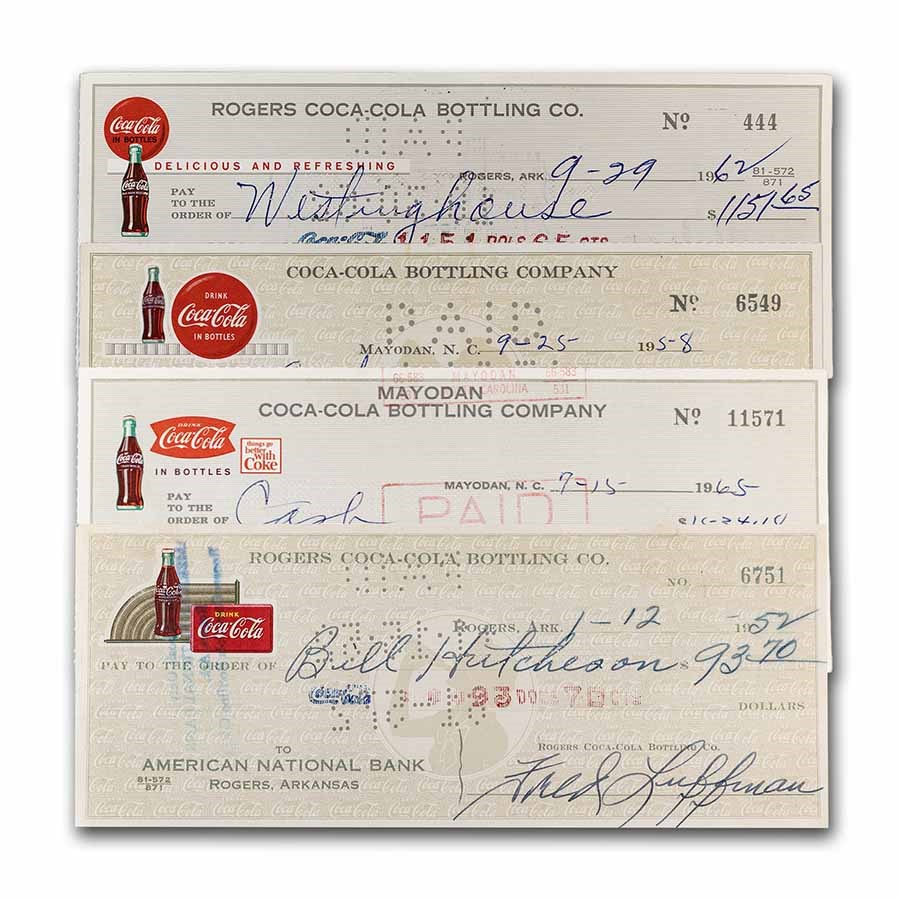 ROGERS COCA-COLA BOTTLING CO.
Nº 444
Coca-Cola
IN BOTTLES
DELICIOUS AND REFRESHING
Coca-Cola
ROGERS, ARK. 9-29 1962
81-572
871
PAY
TO THE
ORDER OF Westinghouse $1151.65
1151 DOLS 65 CTS
COCA-COLA BOTTLING COMPANY
Nº 6549
DRINK
Coca-Cola
IN BOTTLES
PAID
MAYODAN, N. C. 9-25 195-8
66-583 MAYODAN 66-583
531 CAROLINA 531
MAYODAN
COCA-COLA BOTTLING COMPANY
Nº 11571
DRINK
Coca-Cola
IN BOTTLES
things go
better
with
Coke
Coca-Cola
MAYODAN, N. C. 7-15 1965
PAY
TO THE
ORDER OF Cash
PAID
ROGERS COCA-COLA BOTTLING CO.
NO. 6751
Coca-Cola
DRINK
Coca-Cola
ROGERS, ARK. 1-12 1952
PAY TO THE ORDER OF Bill Hutcheson $ 93.70
93 70
DOLLARS
TO
AMERICAN NATIONAL BANK
81-572
871
ROGERS, ARKANSAS
ROGERS COCA-COLA BOTTLING CO.
Fred Luffman